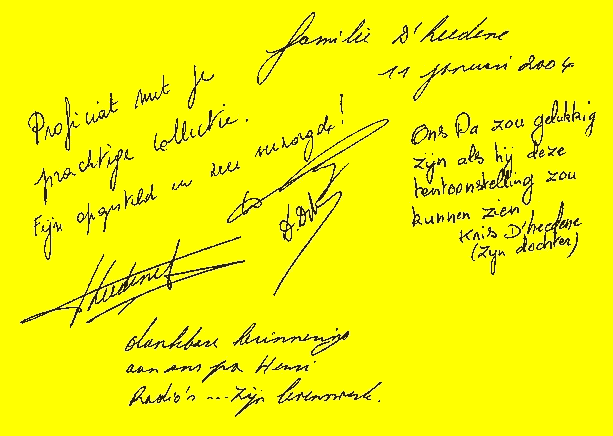 familie D'heedene
11 januari 2004
Proficiat met je
prachtige collectie.
Fijn opgesteld en zeer verzorgd!
Ons Pa zou gelukkig
zijn als hij deze
tentoonstelling zou
kunnen zien
Kris D'heedene
(zijn dochter)
dankbare herinnering
aan ons pa Henri
Radio's ... zijn levenswerk.